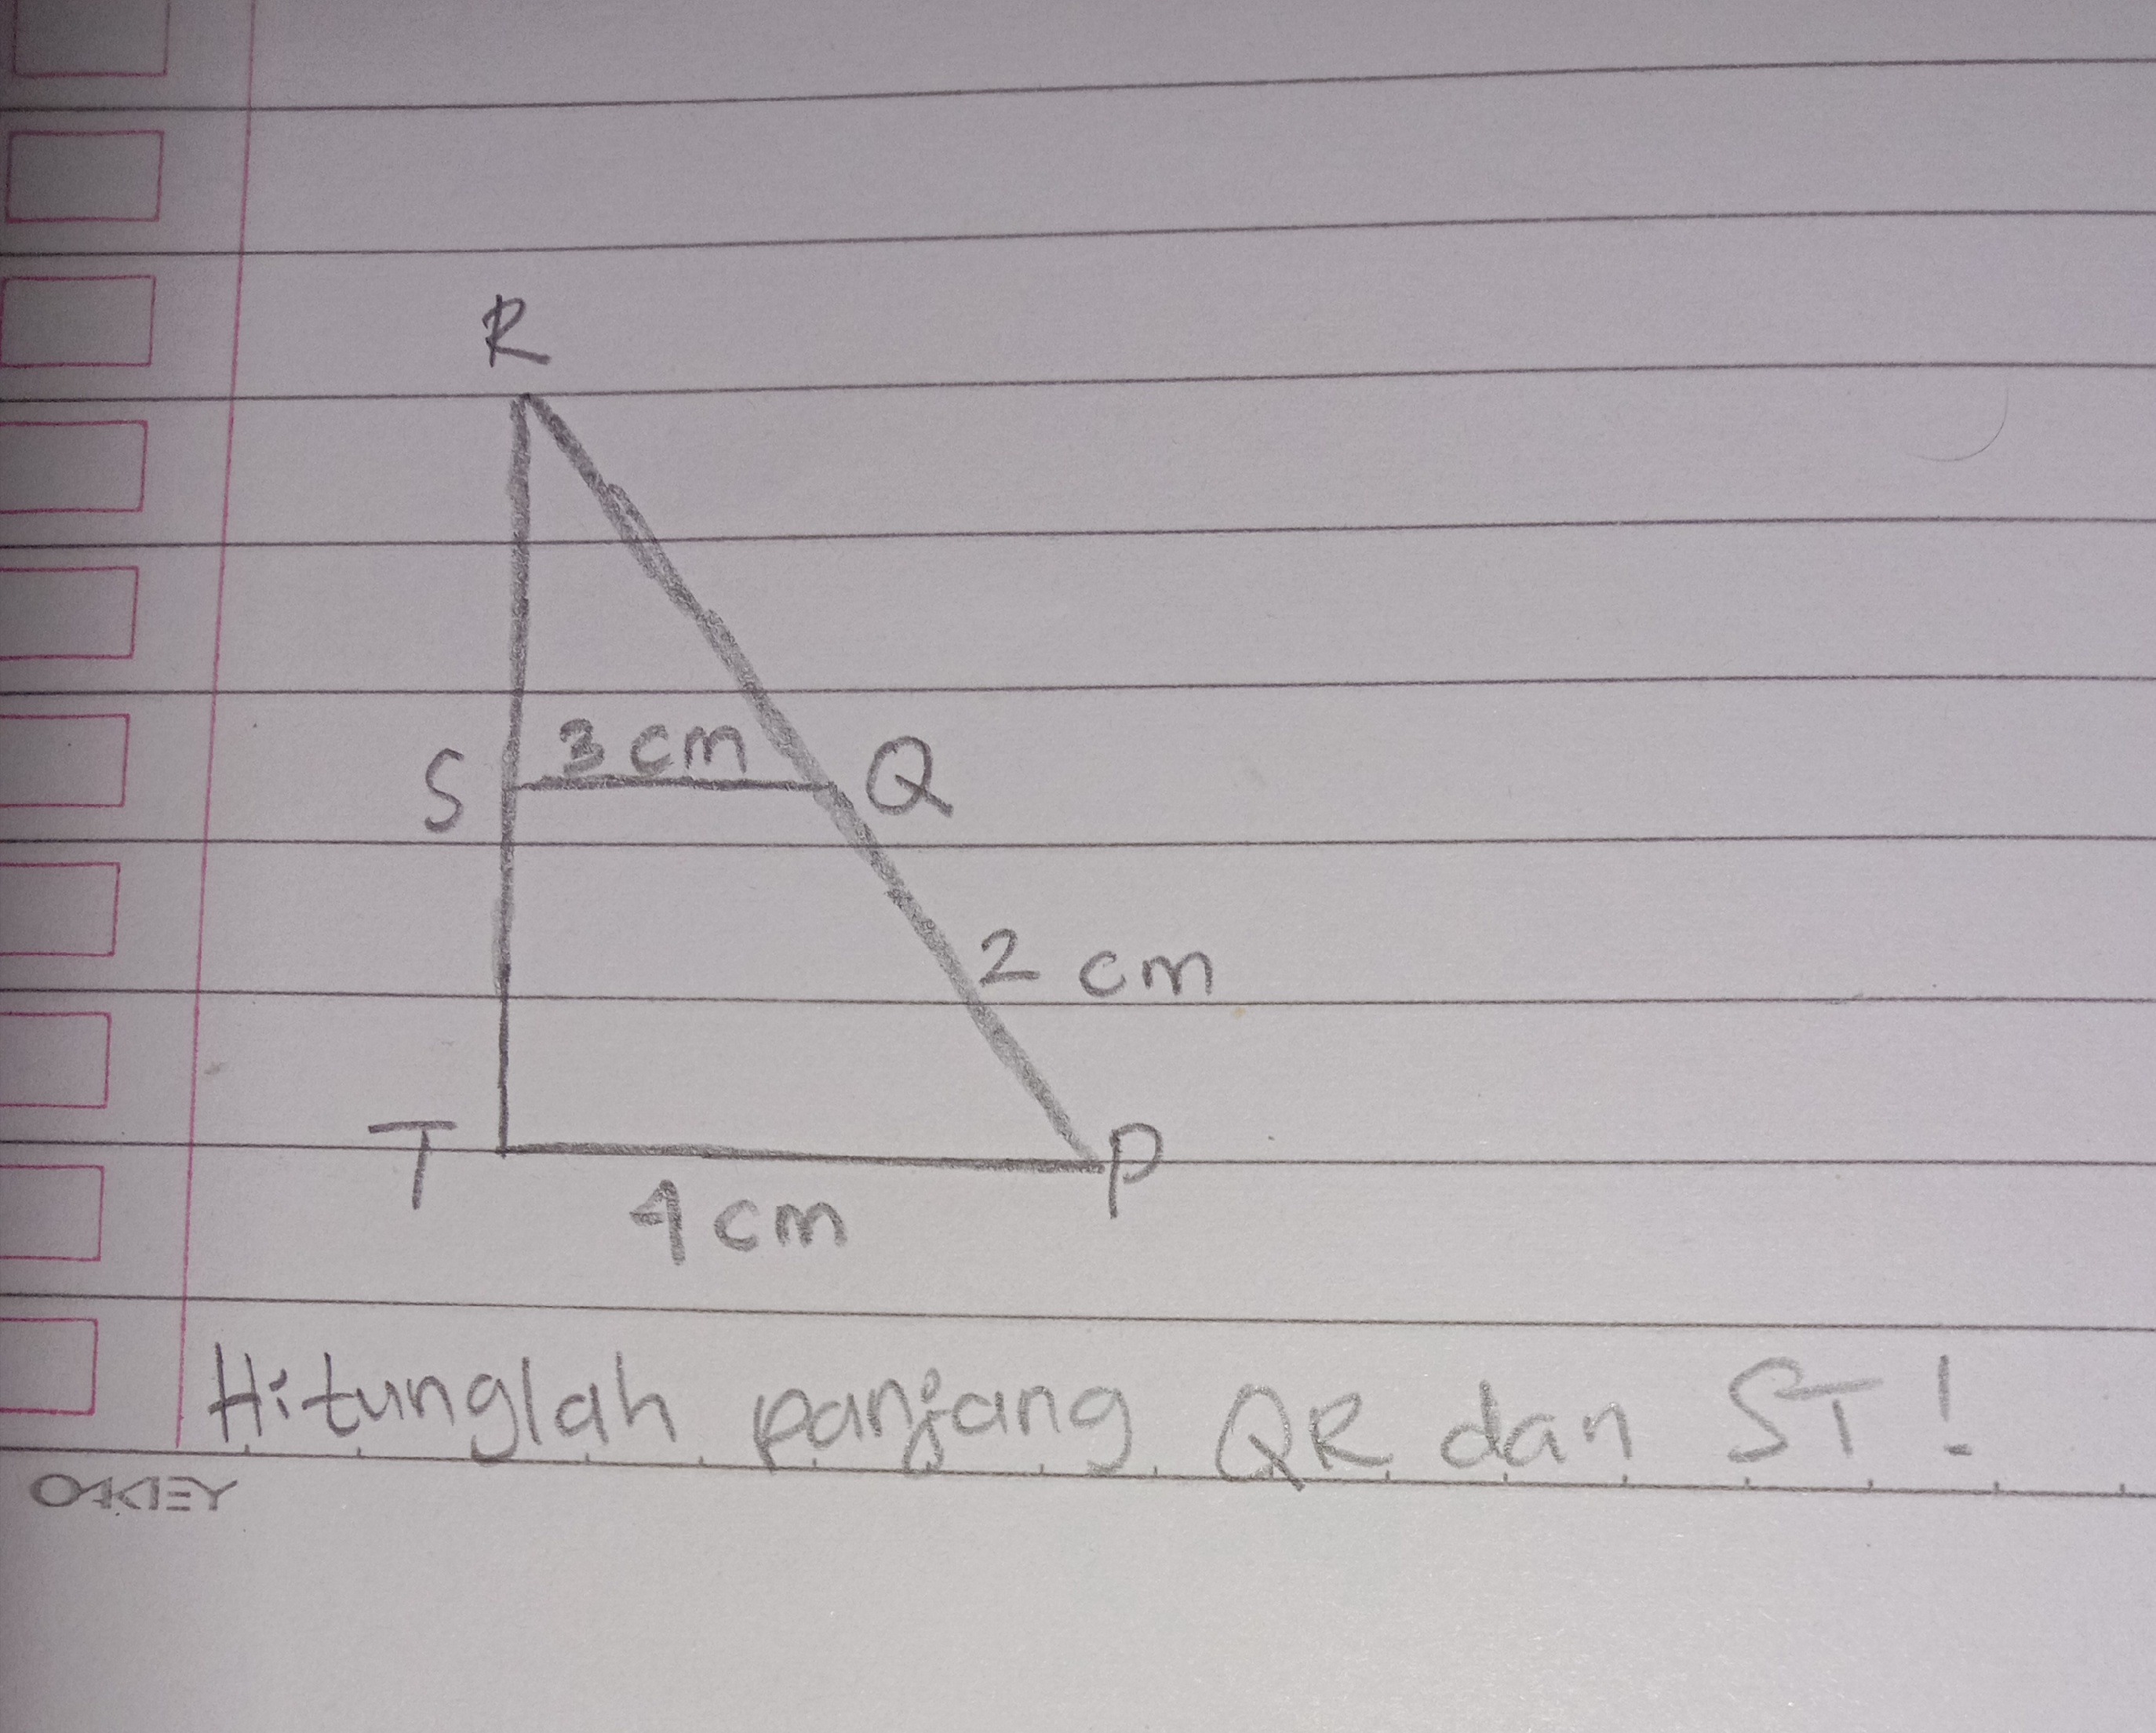 R
S 3 cm Q
2 cm
T P
4 cm
Hitunglah panjang QR dan ST!
OAKEY